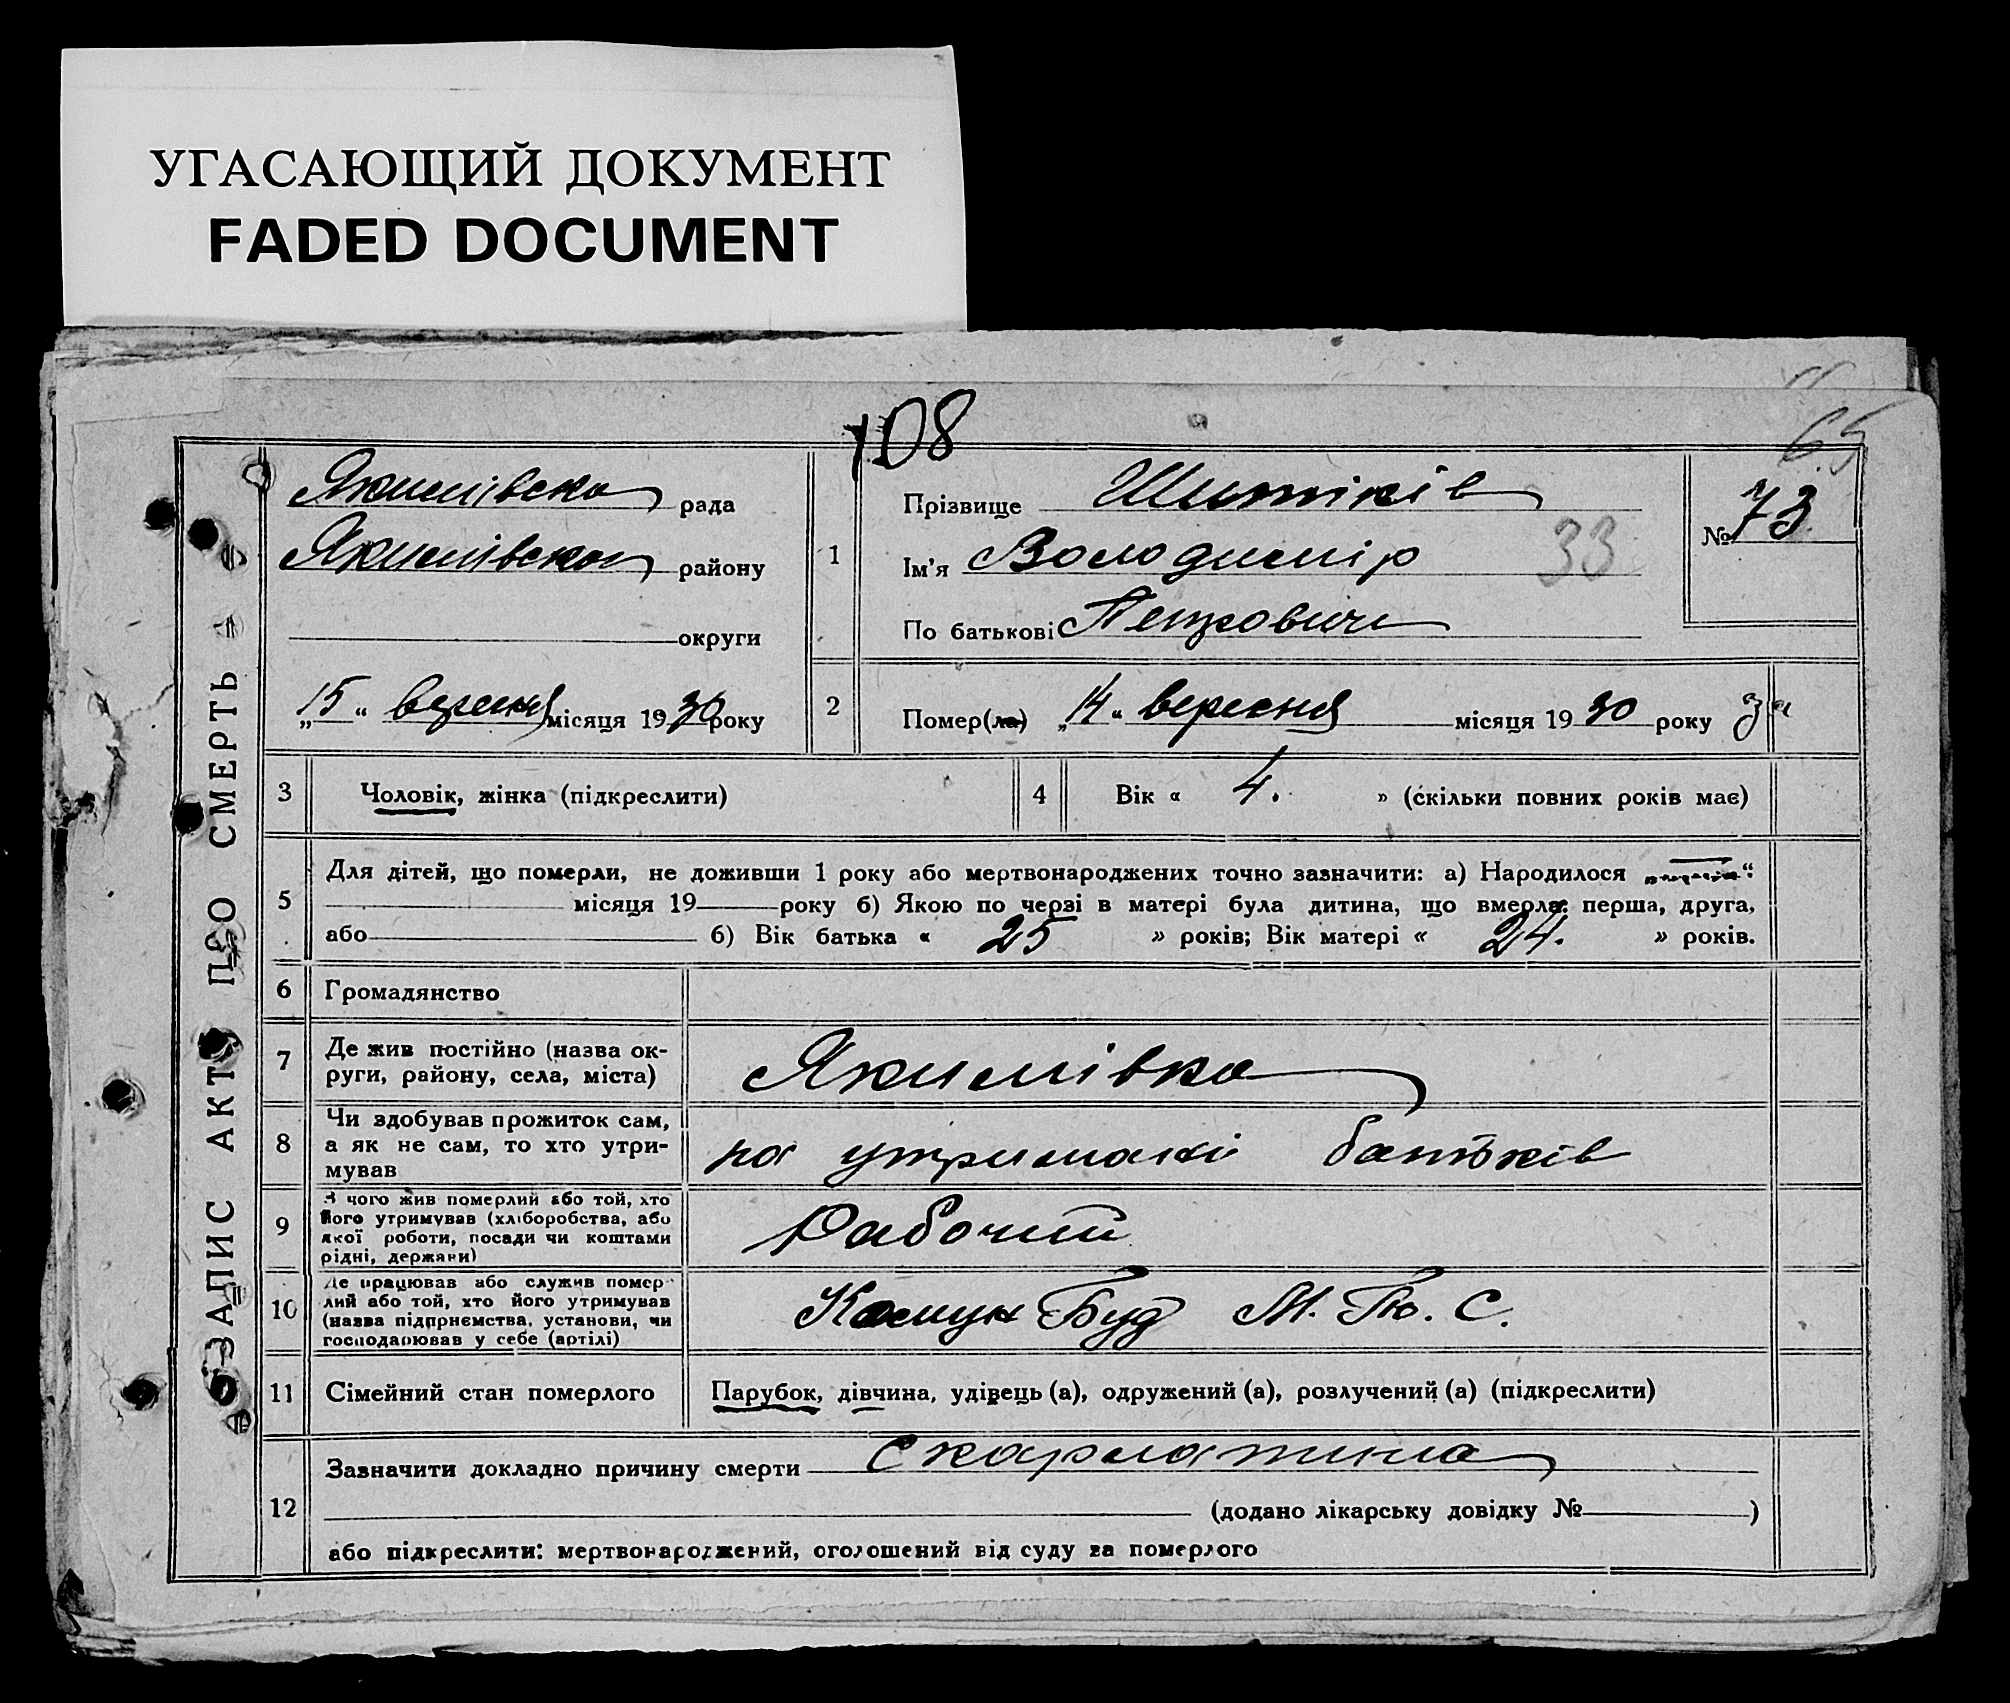 УГАСАЮЩИЙ ДОКУМЕНТ
FADED DOCUMENT
65
108
ЗАПИС АКТУ ПРО СМЕРТЬ
Якимівська рада
Якимівського району
округи
„15“ вересня місяця 1930 року
1
Прізвище Шитіків
Ім'я Володимір 33
По батькові Петрович
№ 73
2
Помер(ла) „14“ вересня місяця 1930 року за
3 Чоловік, жінка (підкреслити)
4 Вік « 4. » (скільки повних років має)
5 Для дітей, що померли, не доживши 1 року або мертвонароджених точно зазначити: а) Народилося
місяця 19 року б) Якою по черзі в матері була дитина, що вмерла: перша, друга,
або б) Вік батька « 25 » років; Вік матері « 24. » років.
6 Громадянство
7 Де жив постійно (назва ок-
руги, району, села, міста)
Якимівка
8 Чи здобував прожиток сам,
а як не сам, то хто утри-
мував
на утриманні батьків
9 З чого жив померлий або той, хто
його утримував (хліборобства, або
якої роботи, посади чи коштами
рідні, держави)
Рабочий
10 Де працював або служив помер-
лий або той, хто його утримував
(назва підприємства, установи, чи
господарював у себе (артілі)
Комун Буд М. Пю. С.
11 Сімейний стан померлого
Парубок, дівчина, удівець (а), одружений (а), розлучений (а) (підкреслити)
12 Зазначити докладно причину смерти Скарлатина
(додано лікарську довідку № )
або підкреслити: мертвонароджений, оголошений від суду за померлого